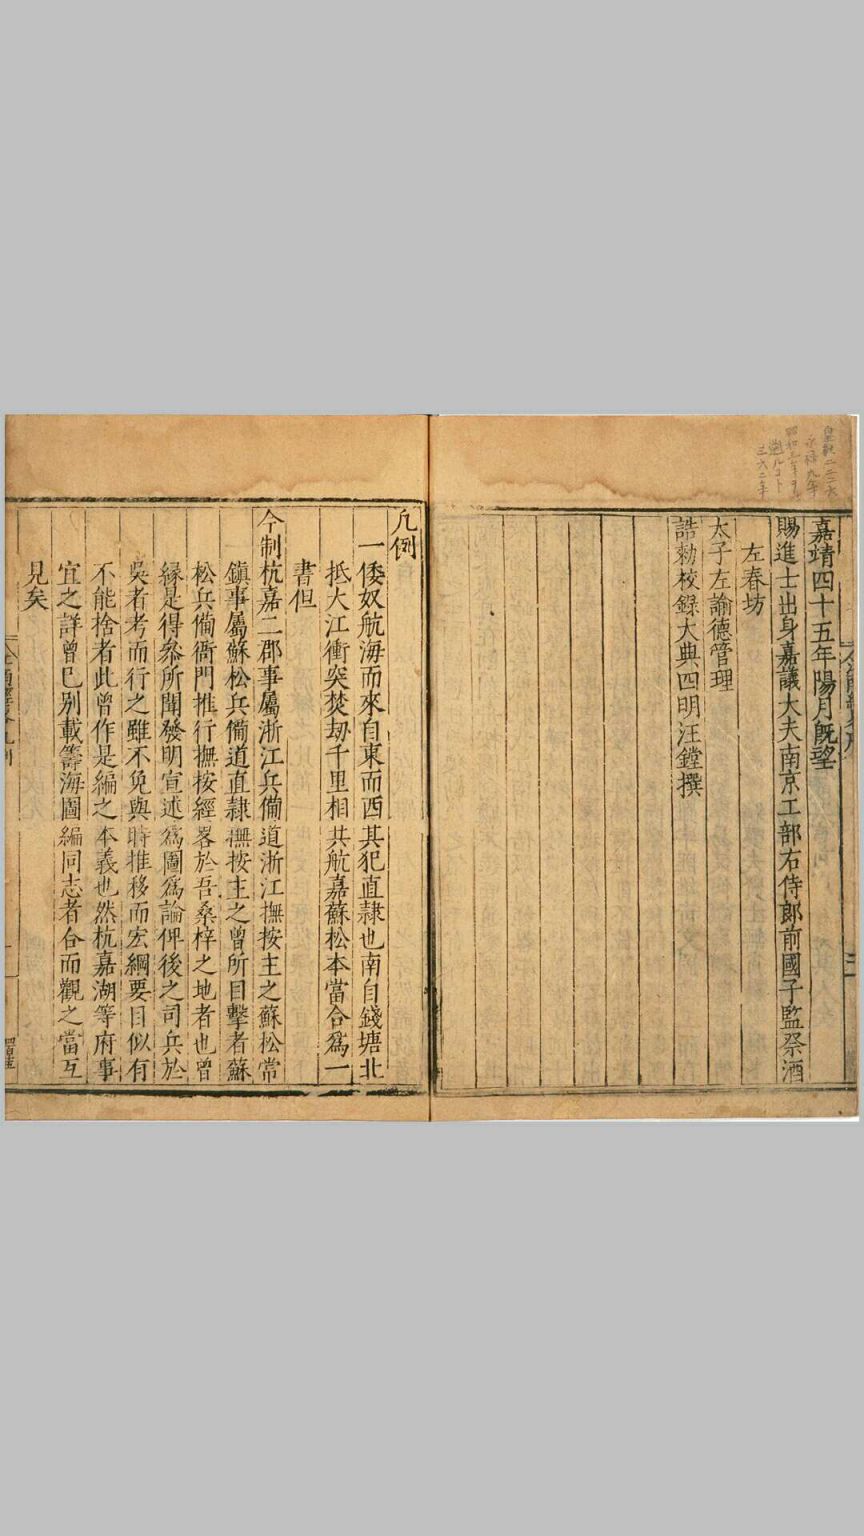 嘉靖四十五年陽月既望
賜進士出身嘉議大夫南京工部右侍郎前國子監祭酒
左春坊
太子左諭德管理
誥勑校錄大典四明汪鏜撰
凡例
一倭奴航海而來自東而西其犯直隷也南自錢塘北
抵大江衝突焚刼千里相共杭嘉蘇松本當合爲一
書但
今制杭嘉二郡事屬浙江兵備道浙江撫按主之蘇松常
鎮事屬蘇松兵備道直隷撫按主之曾所目擊者蘇
松兵備衙門推行撫按經畧於吾桑梓之地者也曾
緣是得叅所聞發明宣述爲圖爲論俾後之司兵於
吳者考而行之雖不免與時推移而宏綱要目似有
不能捨者此曾作是編之本義也然杭嘉湖等府事
宜之詳曾已别載籌海圖編同志者合而觀之當互
見矣